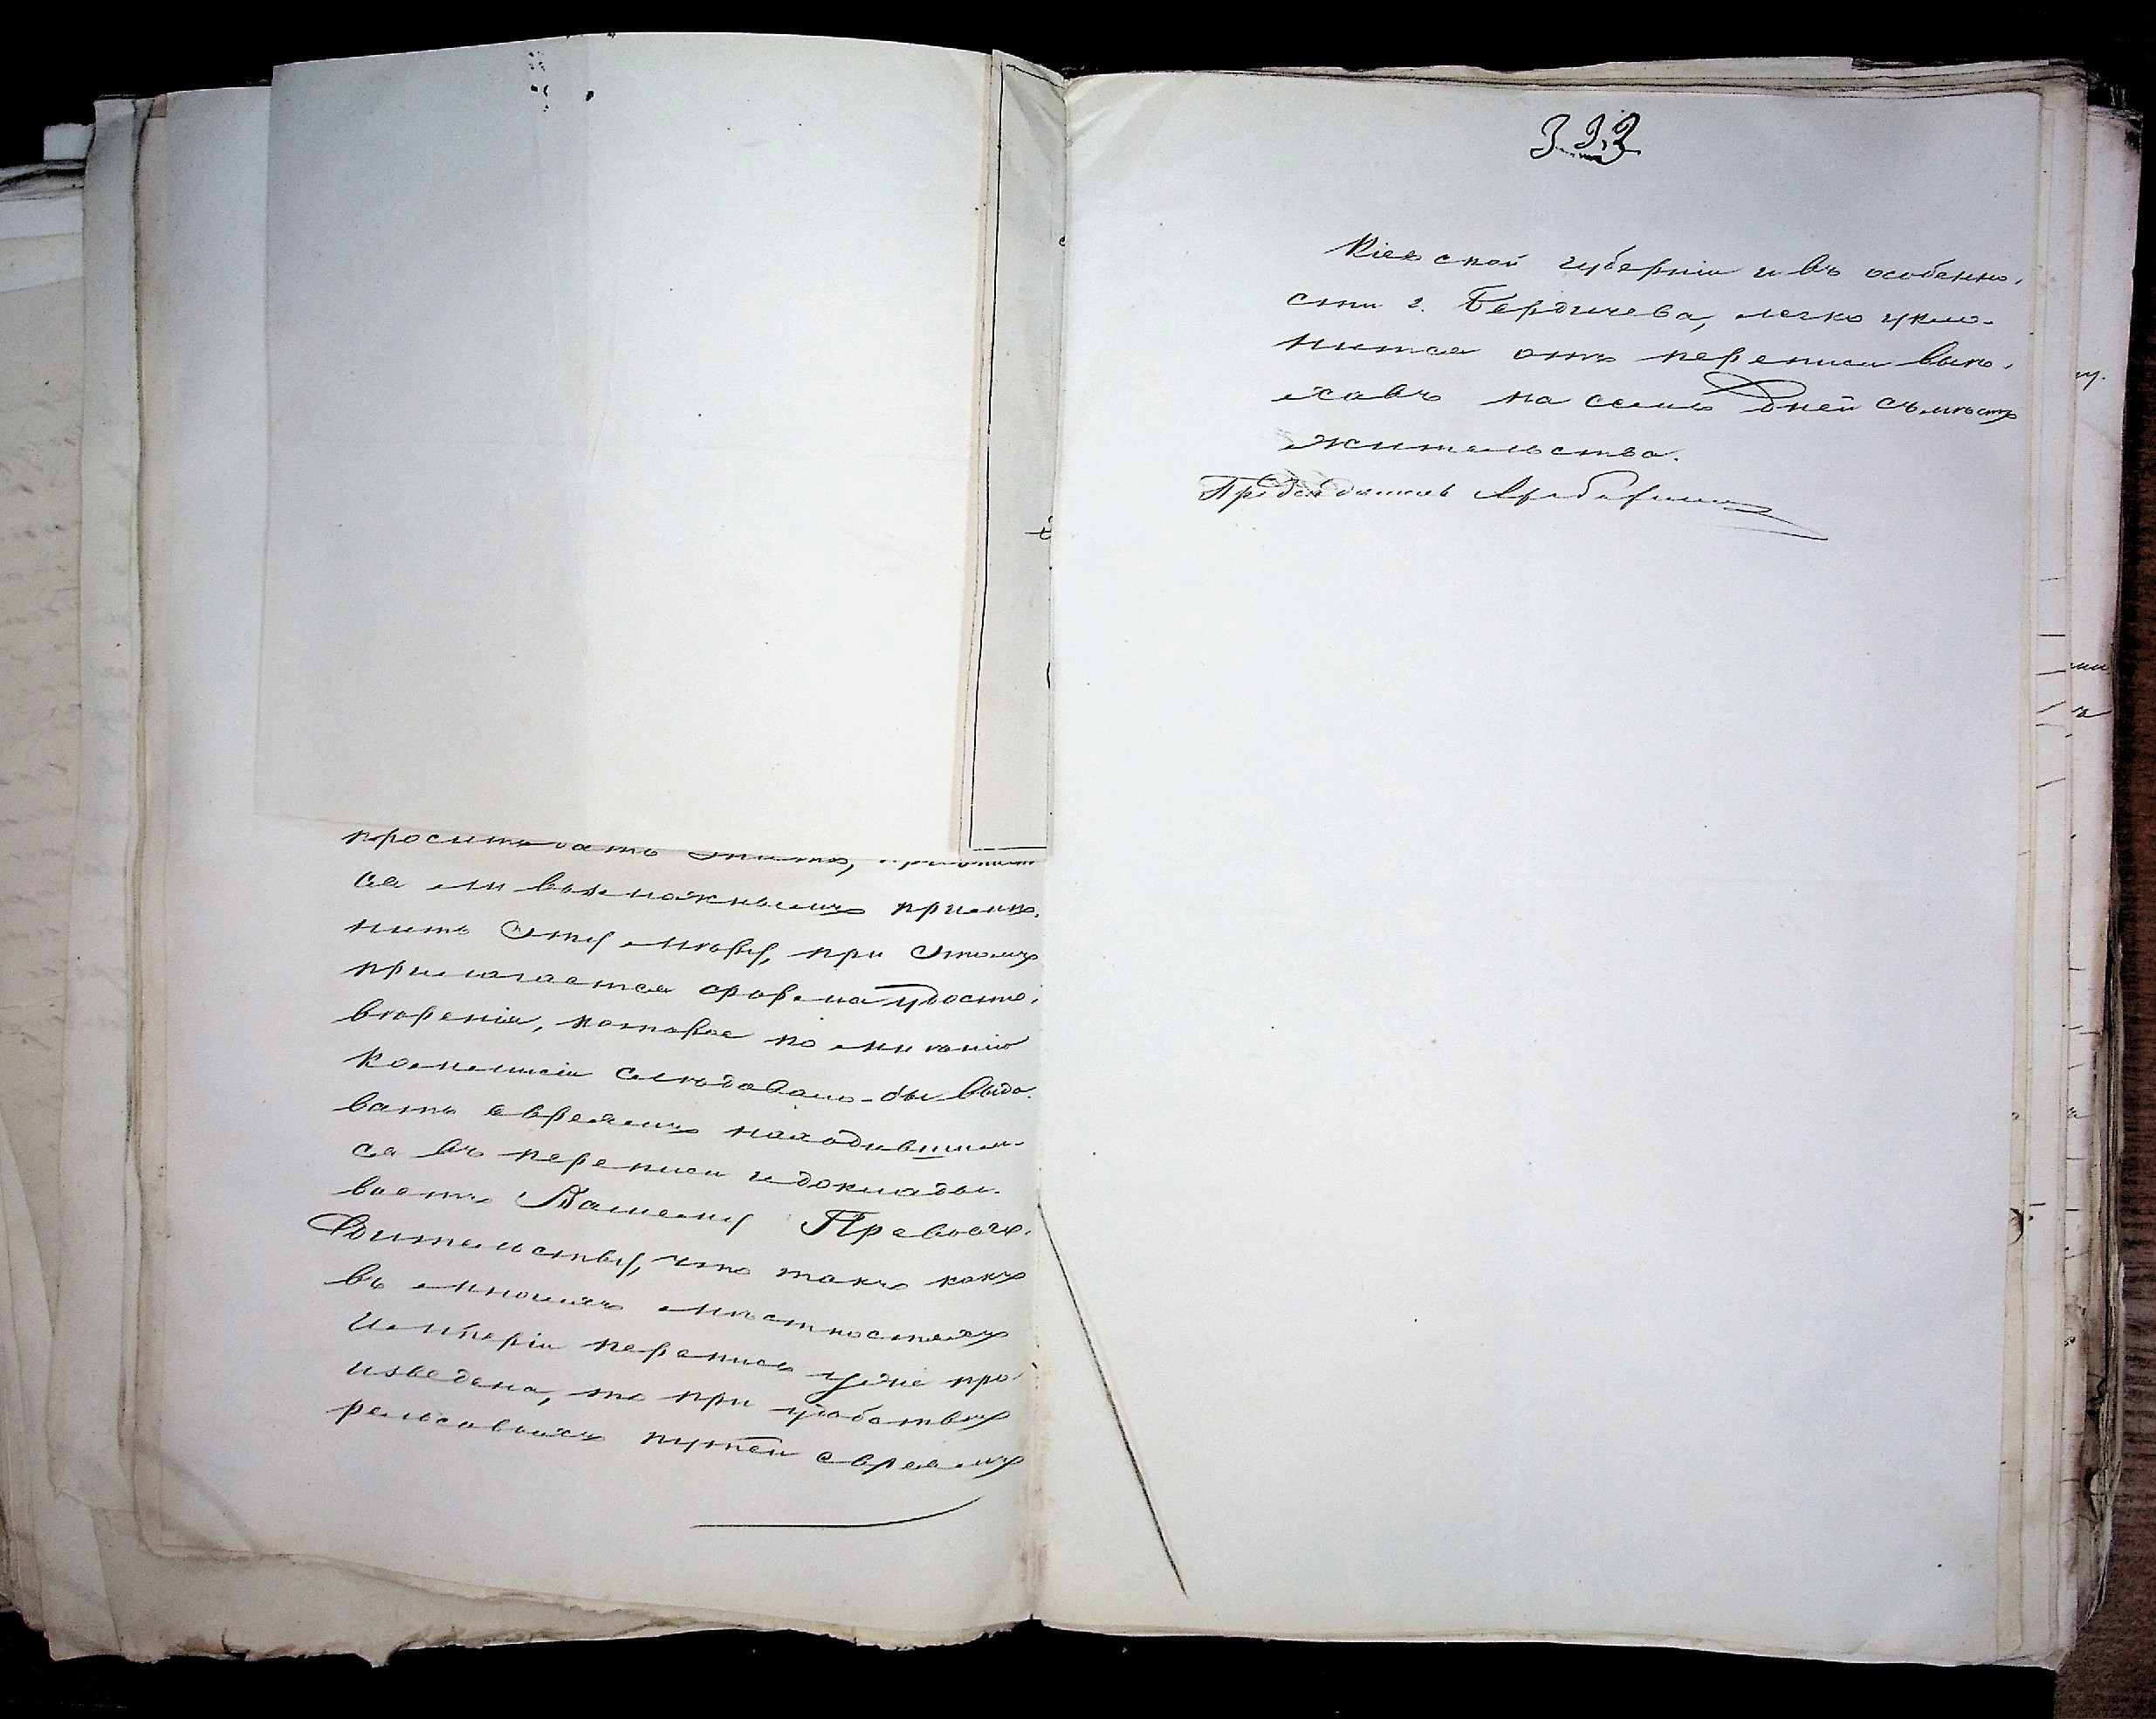 просит дать знать,
ся ли возможнымъ примѣ-
нить эту мѣру, при этомъ
прилагается форма удосто-
вѣренія, которое по мнѣнію
коммисіи слѣдовало-бы выда-
вать евреямъ находившим-
ся въ переписи и доклады-
ваетъ Вашему Превосхо-
дительству, что такъ какъ
въ многихъ мѣстностяхъ
Имперіи перепись уже про-
изведена, то при удобствѣ
рельсовыхъ путей евреямъ
333
Кіевской губерніи и въ особенно-
сти г. Бердичева, легко укло-
нится отъ переписи выѣ-
хавъ на семь дней съ мѣста
жительства.
Предсѣдатель